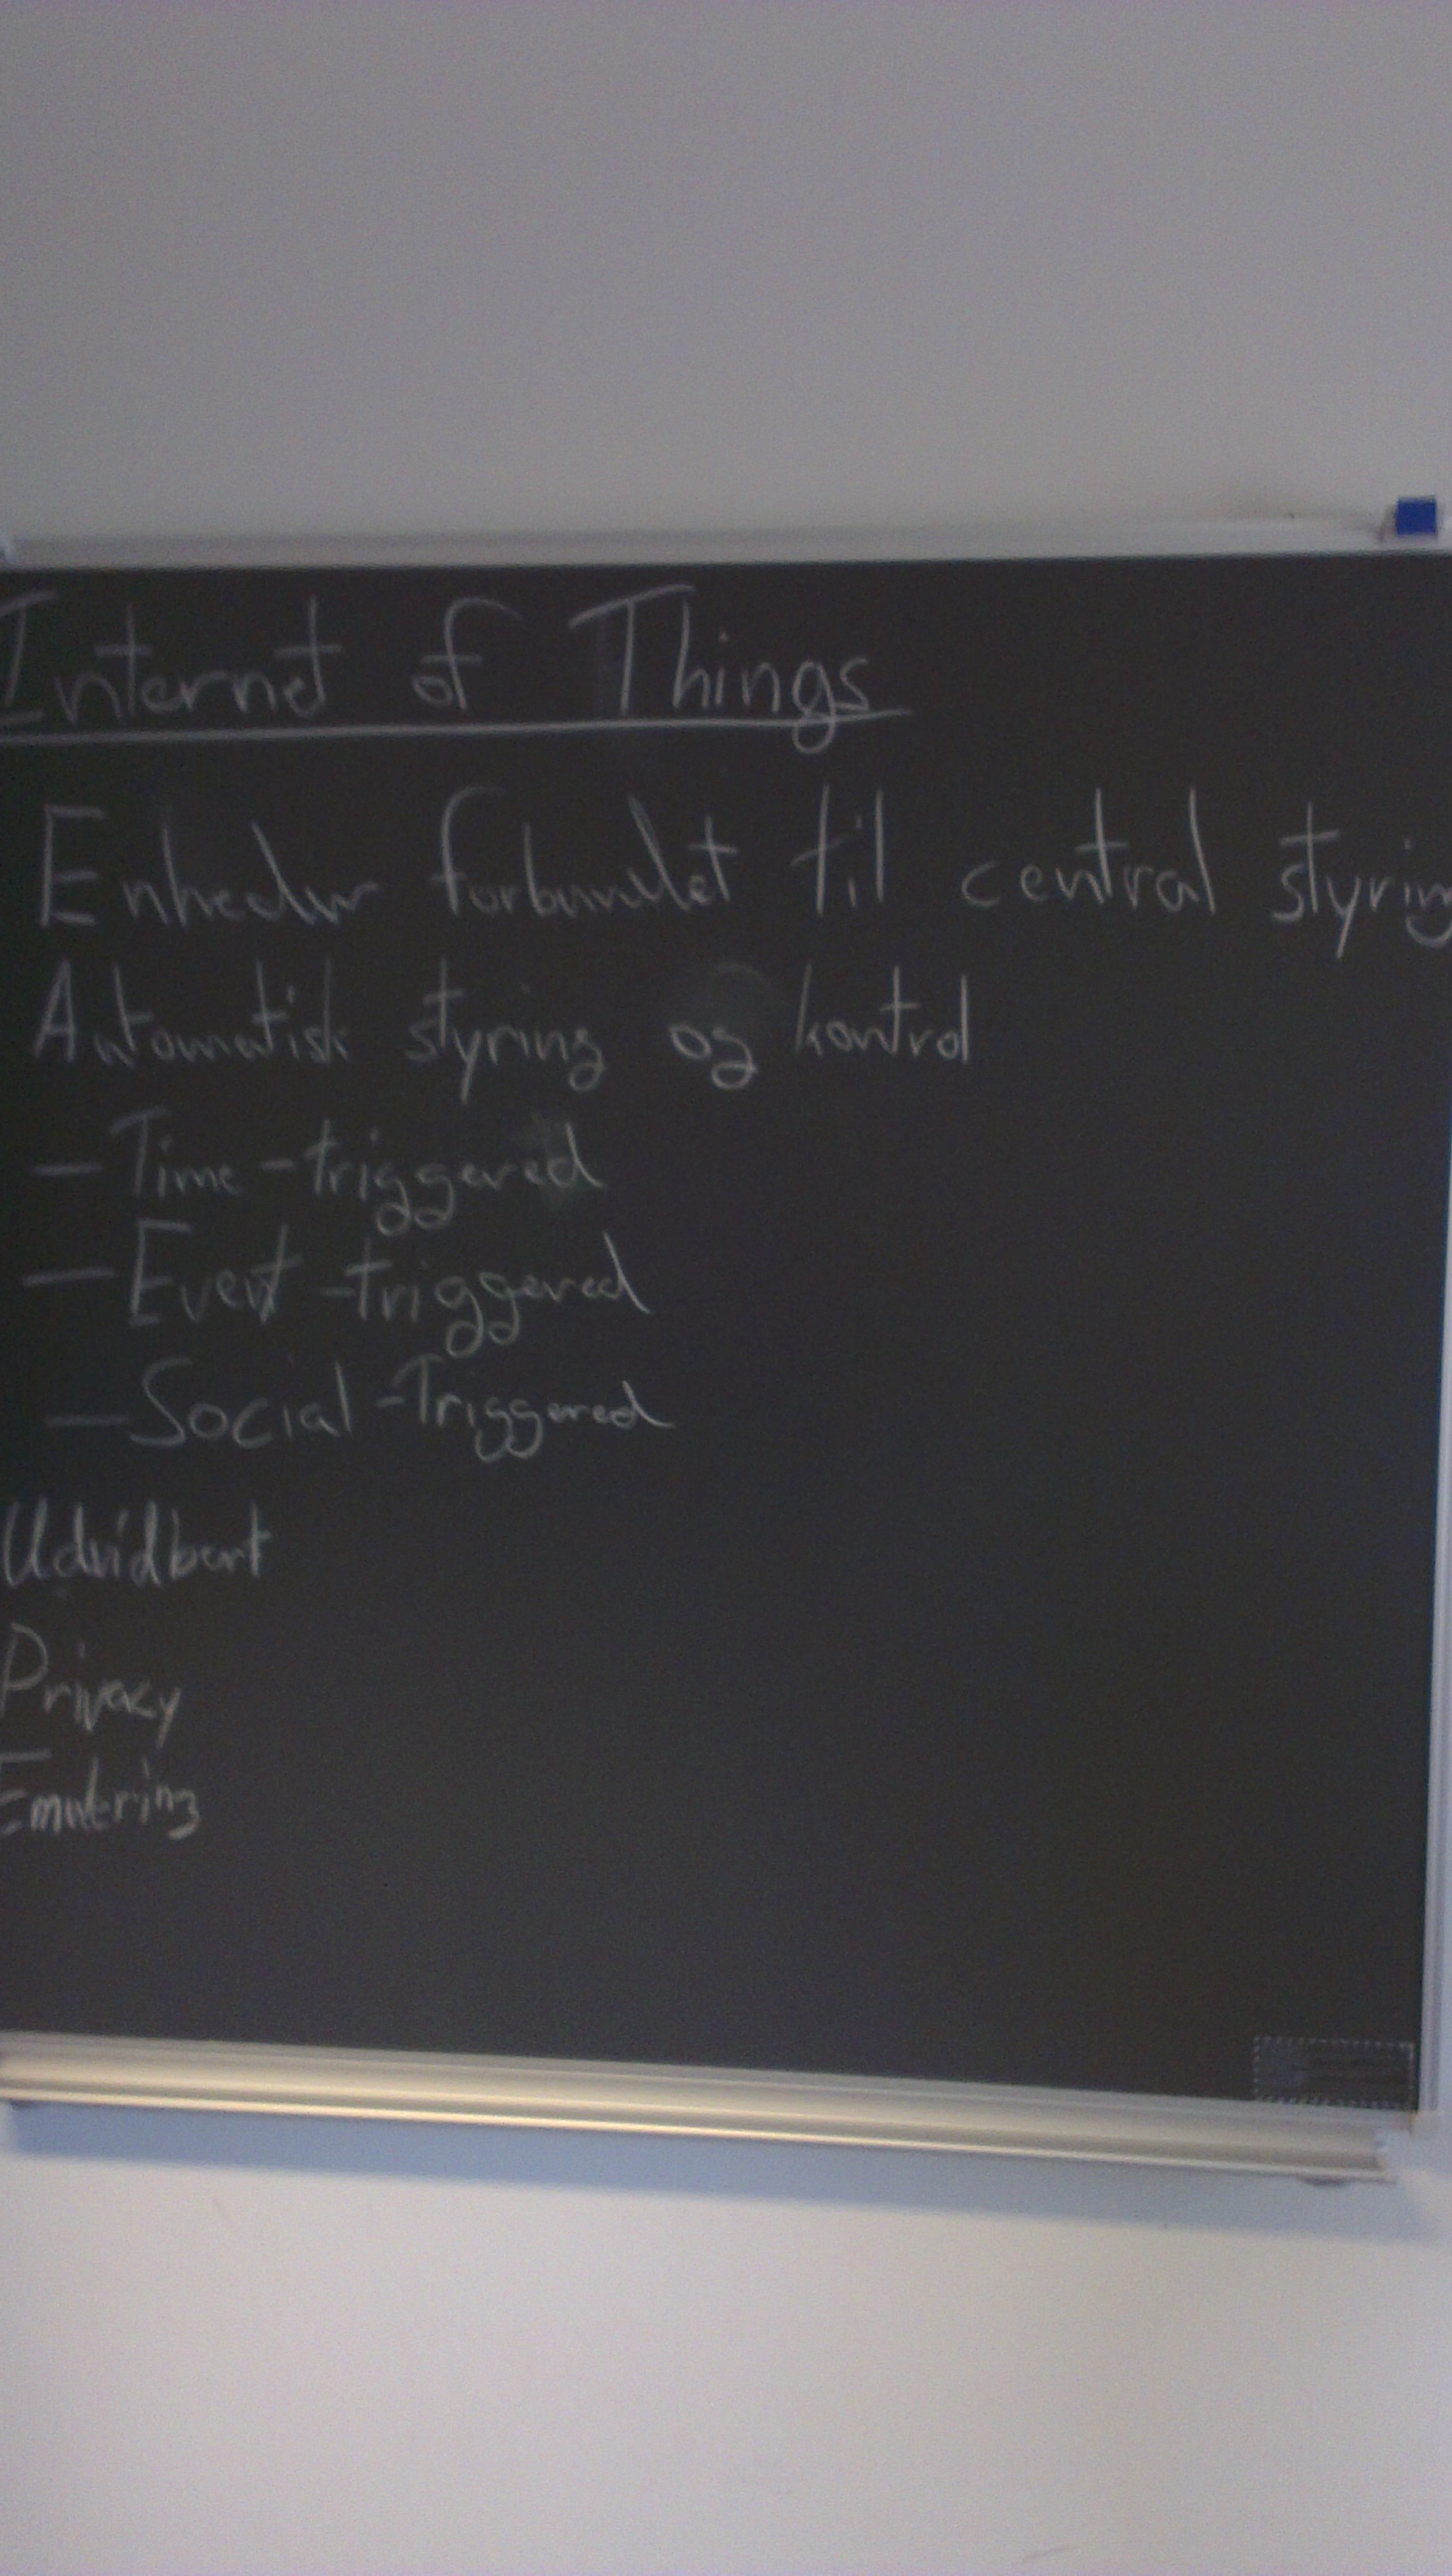 Internet of Things
Enheder forbundet til central styring
Automatisk styring og kontrol
— Time-triggered
— Event-triggered
— Social-Triggered
Udvidbart
Privacy
Emulering